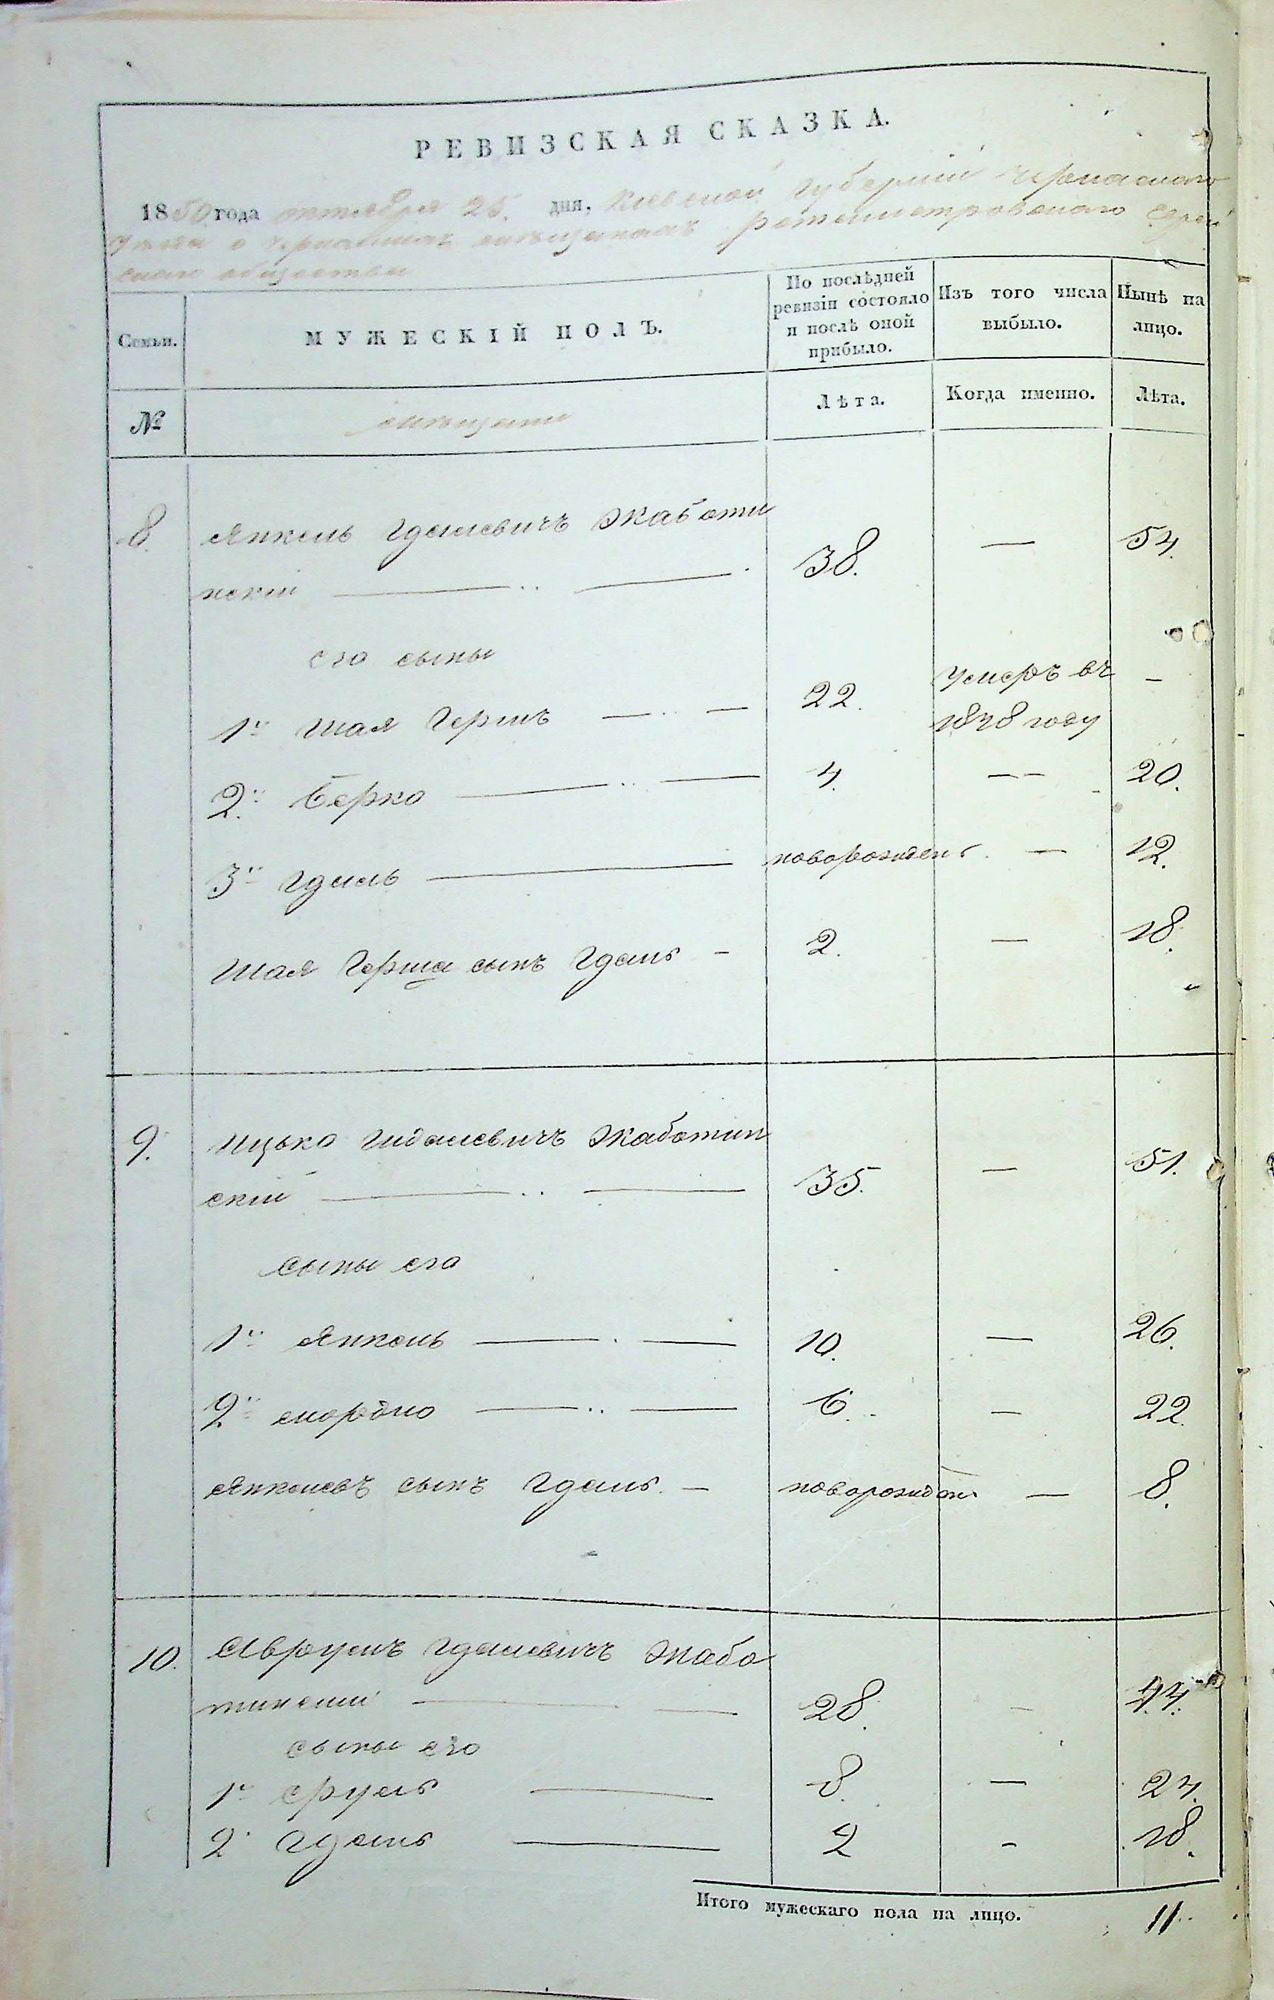 РЕВИЗСКАЯ СКАЗКА.
1850 года октября 25. дня, Кіевской Губерніи Черкаскаго
уезда о Черкаскихъ мещанахъ Ротмистровскаго Еврей
скаго общества
Семьи. МУЖЕСКІЙ ПОЛЪ. По послѣдней ревизіи состояло и послѣ оной прибыло. Изъ того числа выбыло. Нынѣ на лицо.
№ мещане Лѣта. Когда именно. Лѣта.
8. Янкель Гдалевичъ Жаботи
нскій 38. — 54.
его сыны
1й Шая Гершъ 22. умеръ въ 1848 году —
2й Берко 4. — 20.
3й Гдаль новорожденъ. — 12.
Шая Герша сынъ Гдаль 2. — 18.
9. Ицько Гидалевичъ Жаботин
скій 35. — 51.
сыны его
1й Янкель 10. — 26.
2й Мордко 6. — 22.
Янкелевъ сынъ Гдаль новорожден — 8.
10. Аврумъ Гдалевичъ Жабо
тинскій 28. — 44.
сыны его
1й Сруль 8. — 24.
2й Гдаль 2 — 18.
Итого мужескаго пола на лицо. 11.